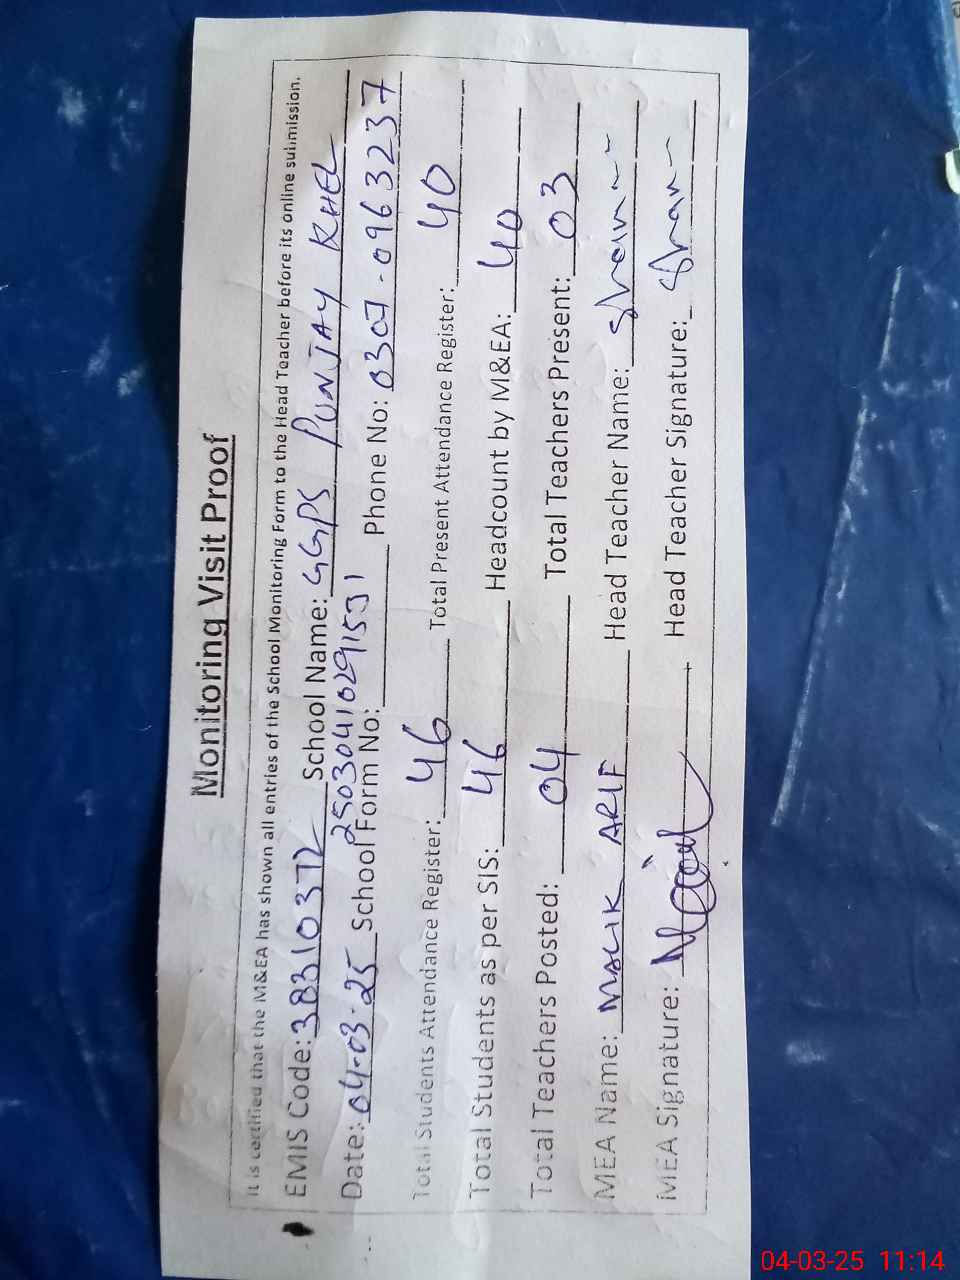 Monitoring Visit Proof
It is certified that the M&EA has shown all entries of the School Monitoring Form to the Head Teacher before its online submission.
EMIS Code: 38310372 School Name: GGPS PUNJAY KHEL
Date: 04-03-25 School Form No: 25030410291531 Phone No: 0307-0963237
Total Students Attendance Register: 46 Total Present Attendance Register: 40
Total Students as per SIS: 46 Headcount by M&EA: 40
Total Teachers Posted: 04 Total Teachers Present: 03
MEA Name: MALIK ARIF Head Teacher Name:
MEA Signature: Head Teacher Signature:
04-03-25 11:14